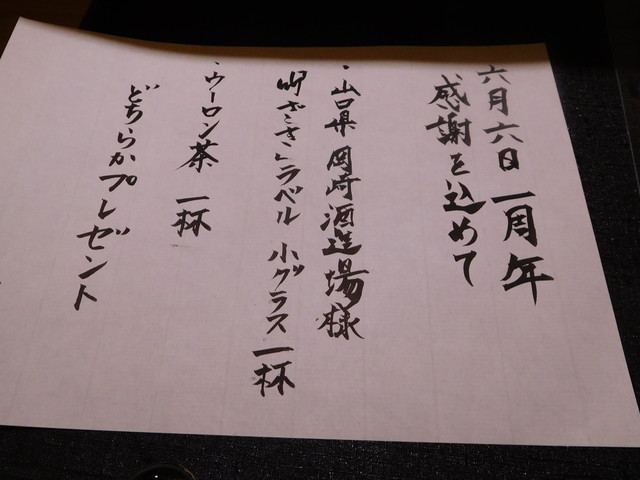 六月六日 一周年
感謝を込めて
・山口県 岡崎酒造場様
ラベル 小グラス 一杯
・ウーロン茶 一杯
どちらかプレゼント